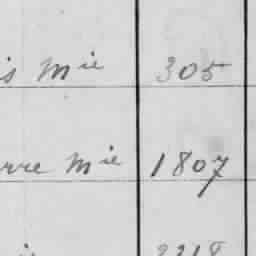 is Mie 305
rre Mie 1807